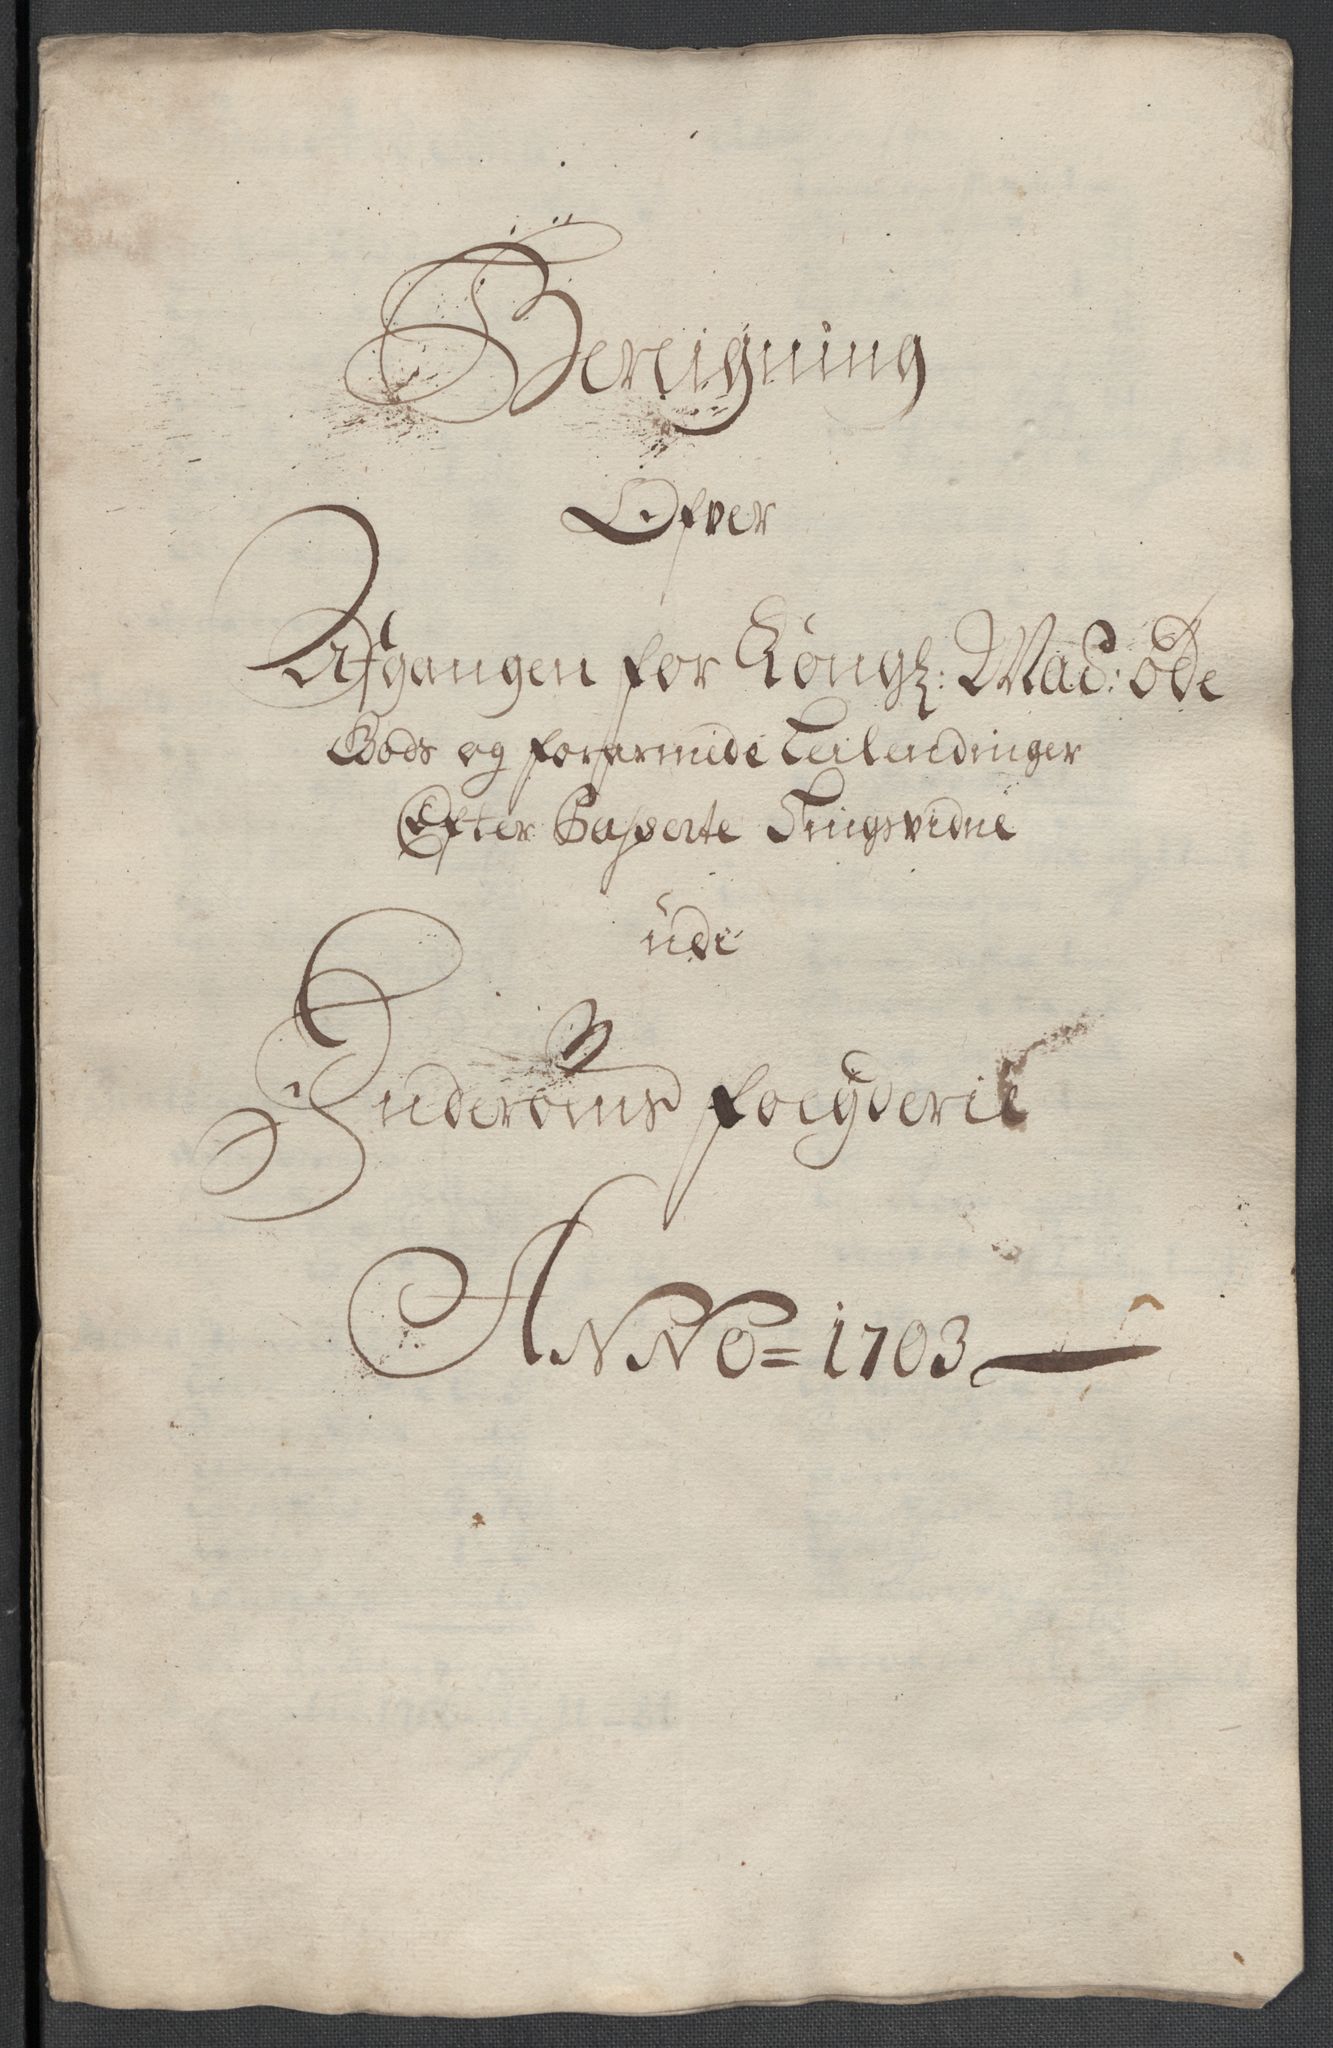 Bereigning
Ofver
Afgangen for Kongl: May: øde
Gods og forarmede Leilendinger
Efter Passerte Tingsvidne
ude
Inderøens fogderie
ANNO = 1703